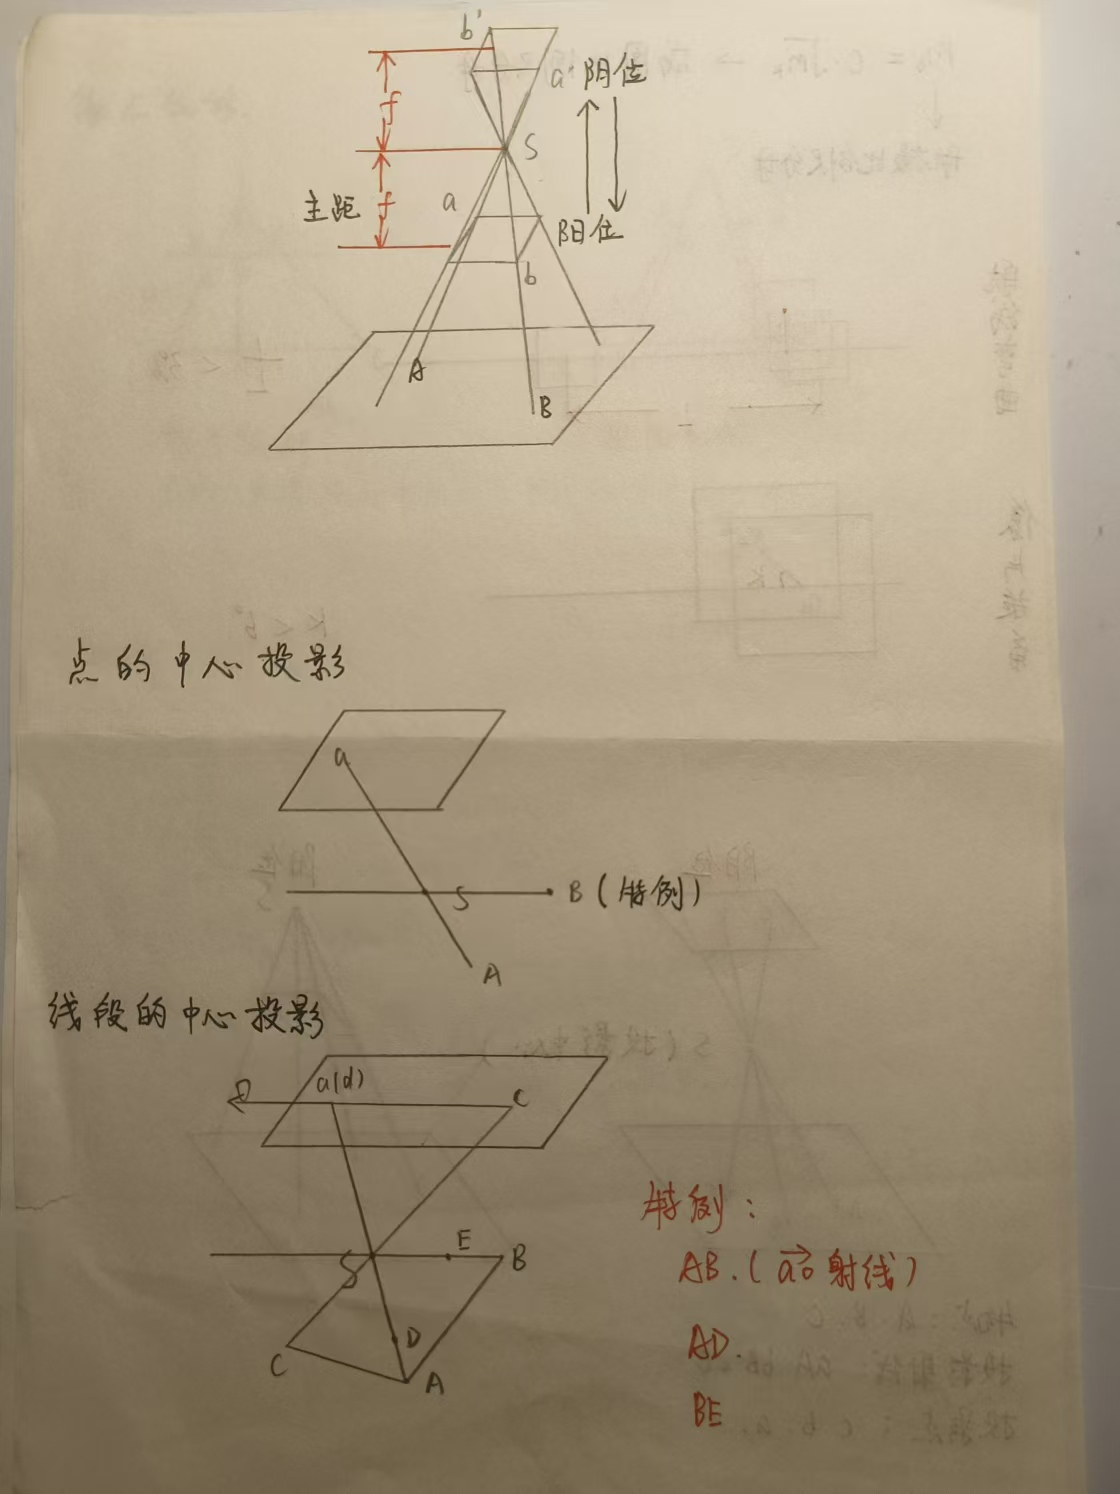 b'
a' 阴位
f
S
主距 f
a
阳位
b
A
B
点的中心投影
a
S
B (特例)
A
线段的中心投影
a(d)
C
E
B
S
D
C
A
特例:
AB. (ao射线)
AD.
BE